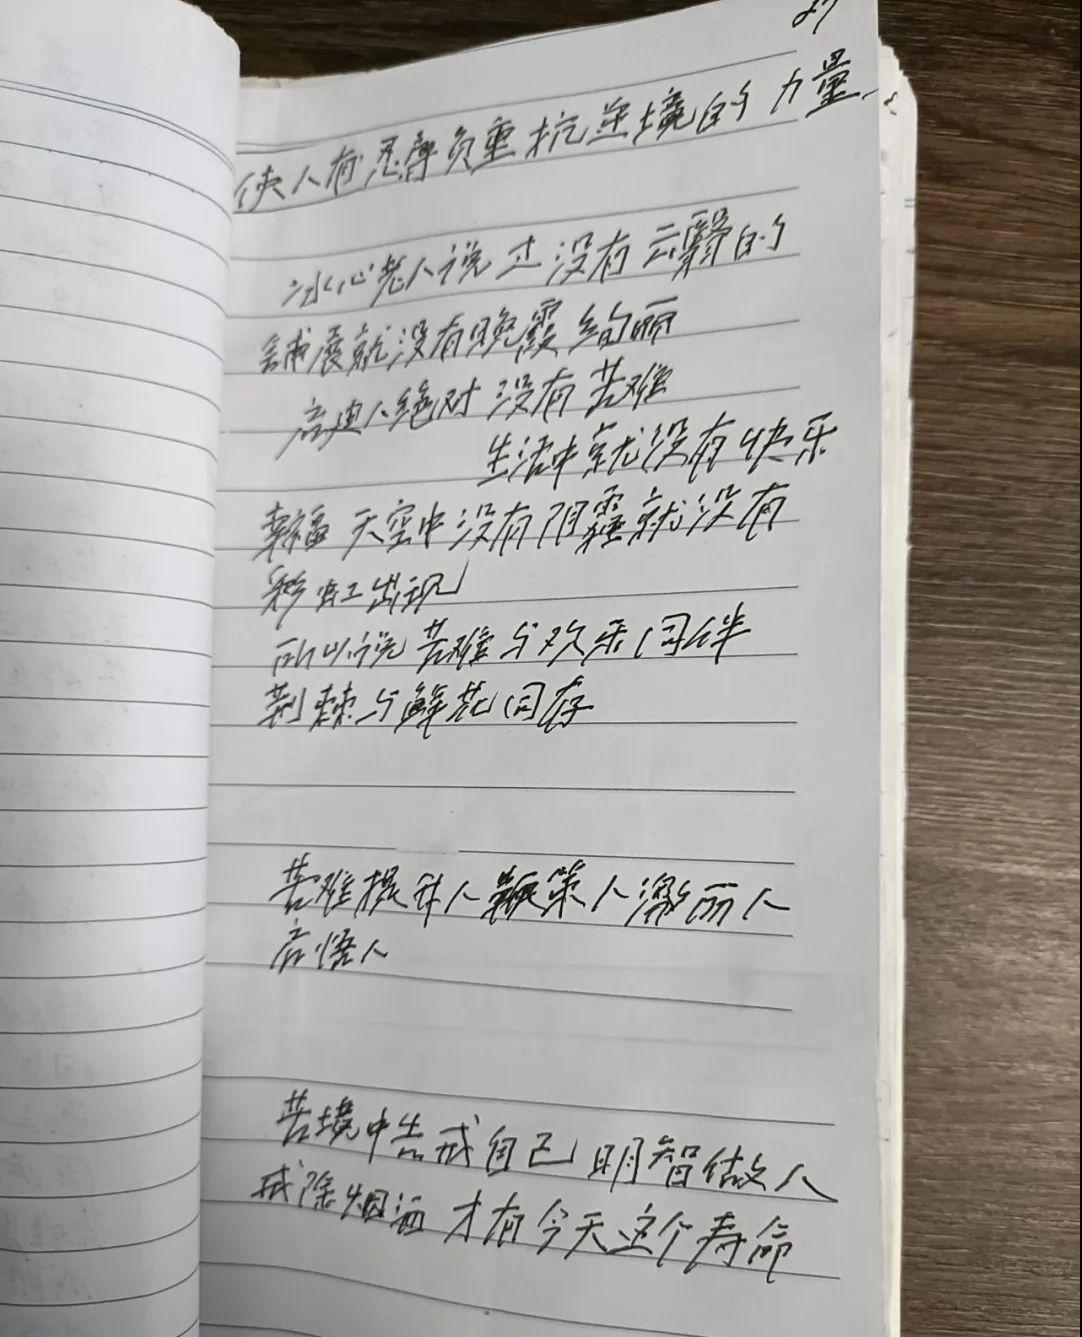 27
使人有忍辱负重抗逆境的力量、
冰心老人说过没有云翳的
铺展就没有晚霞绚丽
启迪人绝对没有苦难
生活中就没有快乐
幸福 天空中没有阴霾就没有
彩虹出现
所以说苦难与欢乐同伴
荆棘与鲜花同存
苦难提升人鞭策人激丽人
启悟人
苦境中告戒自己明智做人
戒除烟酒 才有今天这个寿命